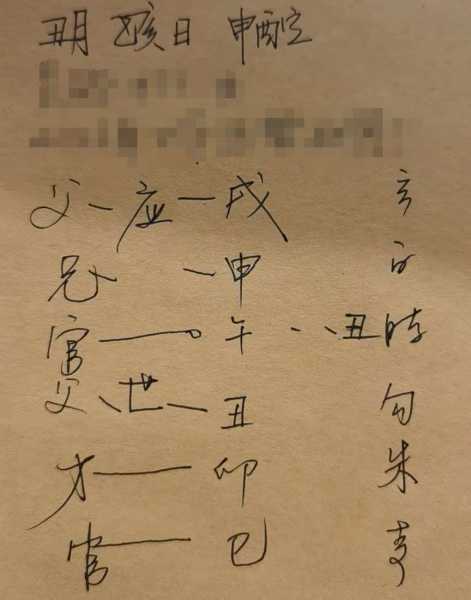 丑月 乙亥日 申酉空
父 应 戌 玄
兄 申 白
官 午 丑
父 世 丑 勾
才 卯 朱
官 巳 青